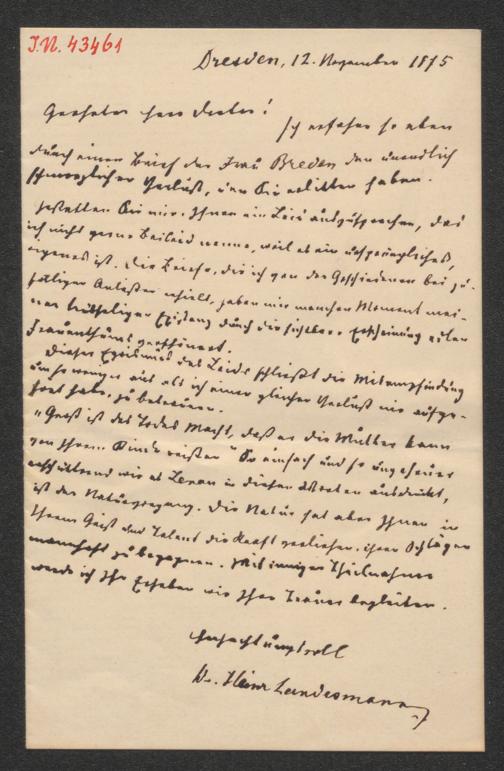 I.N. 43461
Dresden, 12. November 1875
Geehrter Herr Doctor!
Ich erfahre so eben
durch einen Brief der Frau Breden den unendlich
schmerzlichen Verlust, den Sie erlitten haben.
Gestatten Sie mir, Ihnen ein Leid auszusprechen, das
ich nicht gerne Beileid nenne, weil es ein ursprüngliches,
eigenes ist. Die Briefe, die ich von der Geschiedenen bei zu-
fälligen Anlässen erhielt, haben mir manchen Moment mei-
ner trübseligen Existenz durch die sichtbare Erscheinung edlen
Frauenthums verschönert.
Dieser Egoismus des Leids schließt die Mitempfindung
um so weniger aus als ich einen gleichen Verlust nie aufge-
hört habe, zu betrauern.
"Groß ist des Todes Macht, daß er die Mutter kann
von ihrem Kinde reißen" So einfach und so ungeheuer
erschütternd wie es Lenau in diesen Worten ausdrückt,
ist der Naturvorgang. Die Natur hat aber Ihnen in
Ihrem Geist und Talent die Kraft verliehen, ihren Schlägen
mannhaft zu begegnen. Mit inniger Theilnahme
werde ich Ihr Erheben wie Ihre Trauer begleiten.
Hochachtungsvoll
Dr. Heinr Landesmann